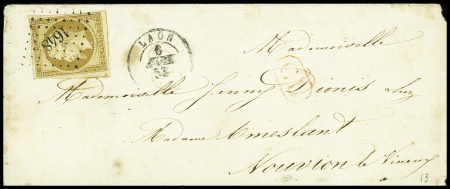 1648
LAON
6
Mademoiselle
Mademoiselle Jenny Dionis chez
Madame Ameslant
Nouvion le Vineux
13